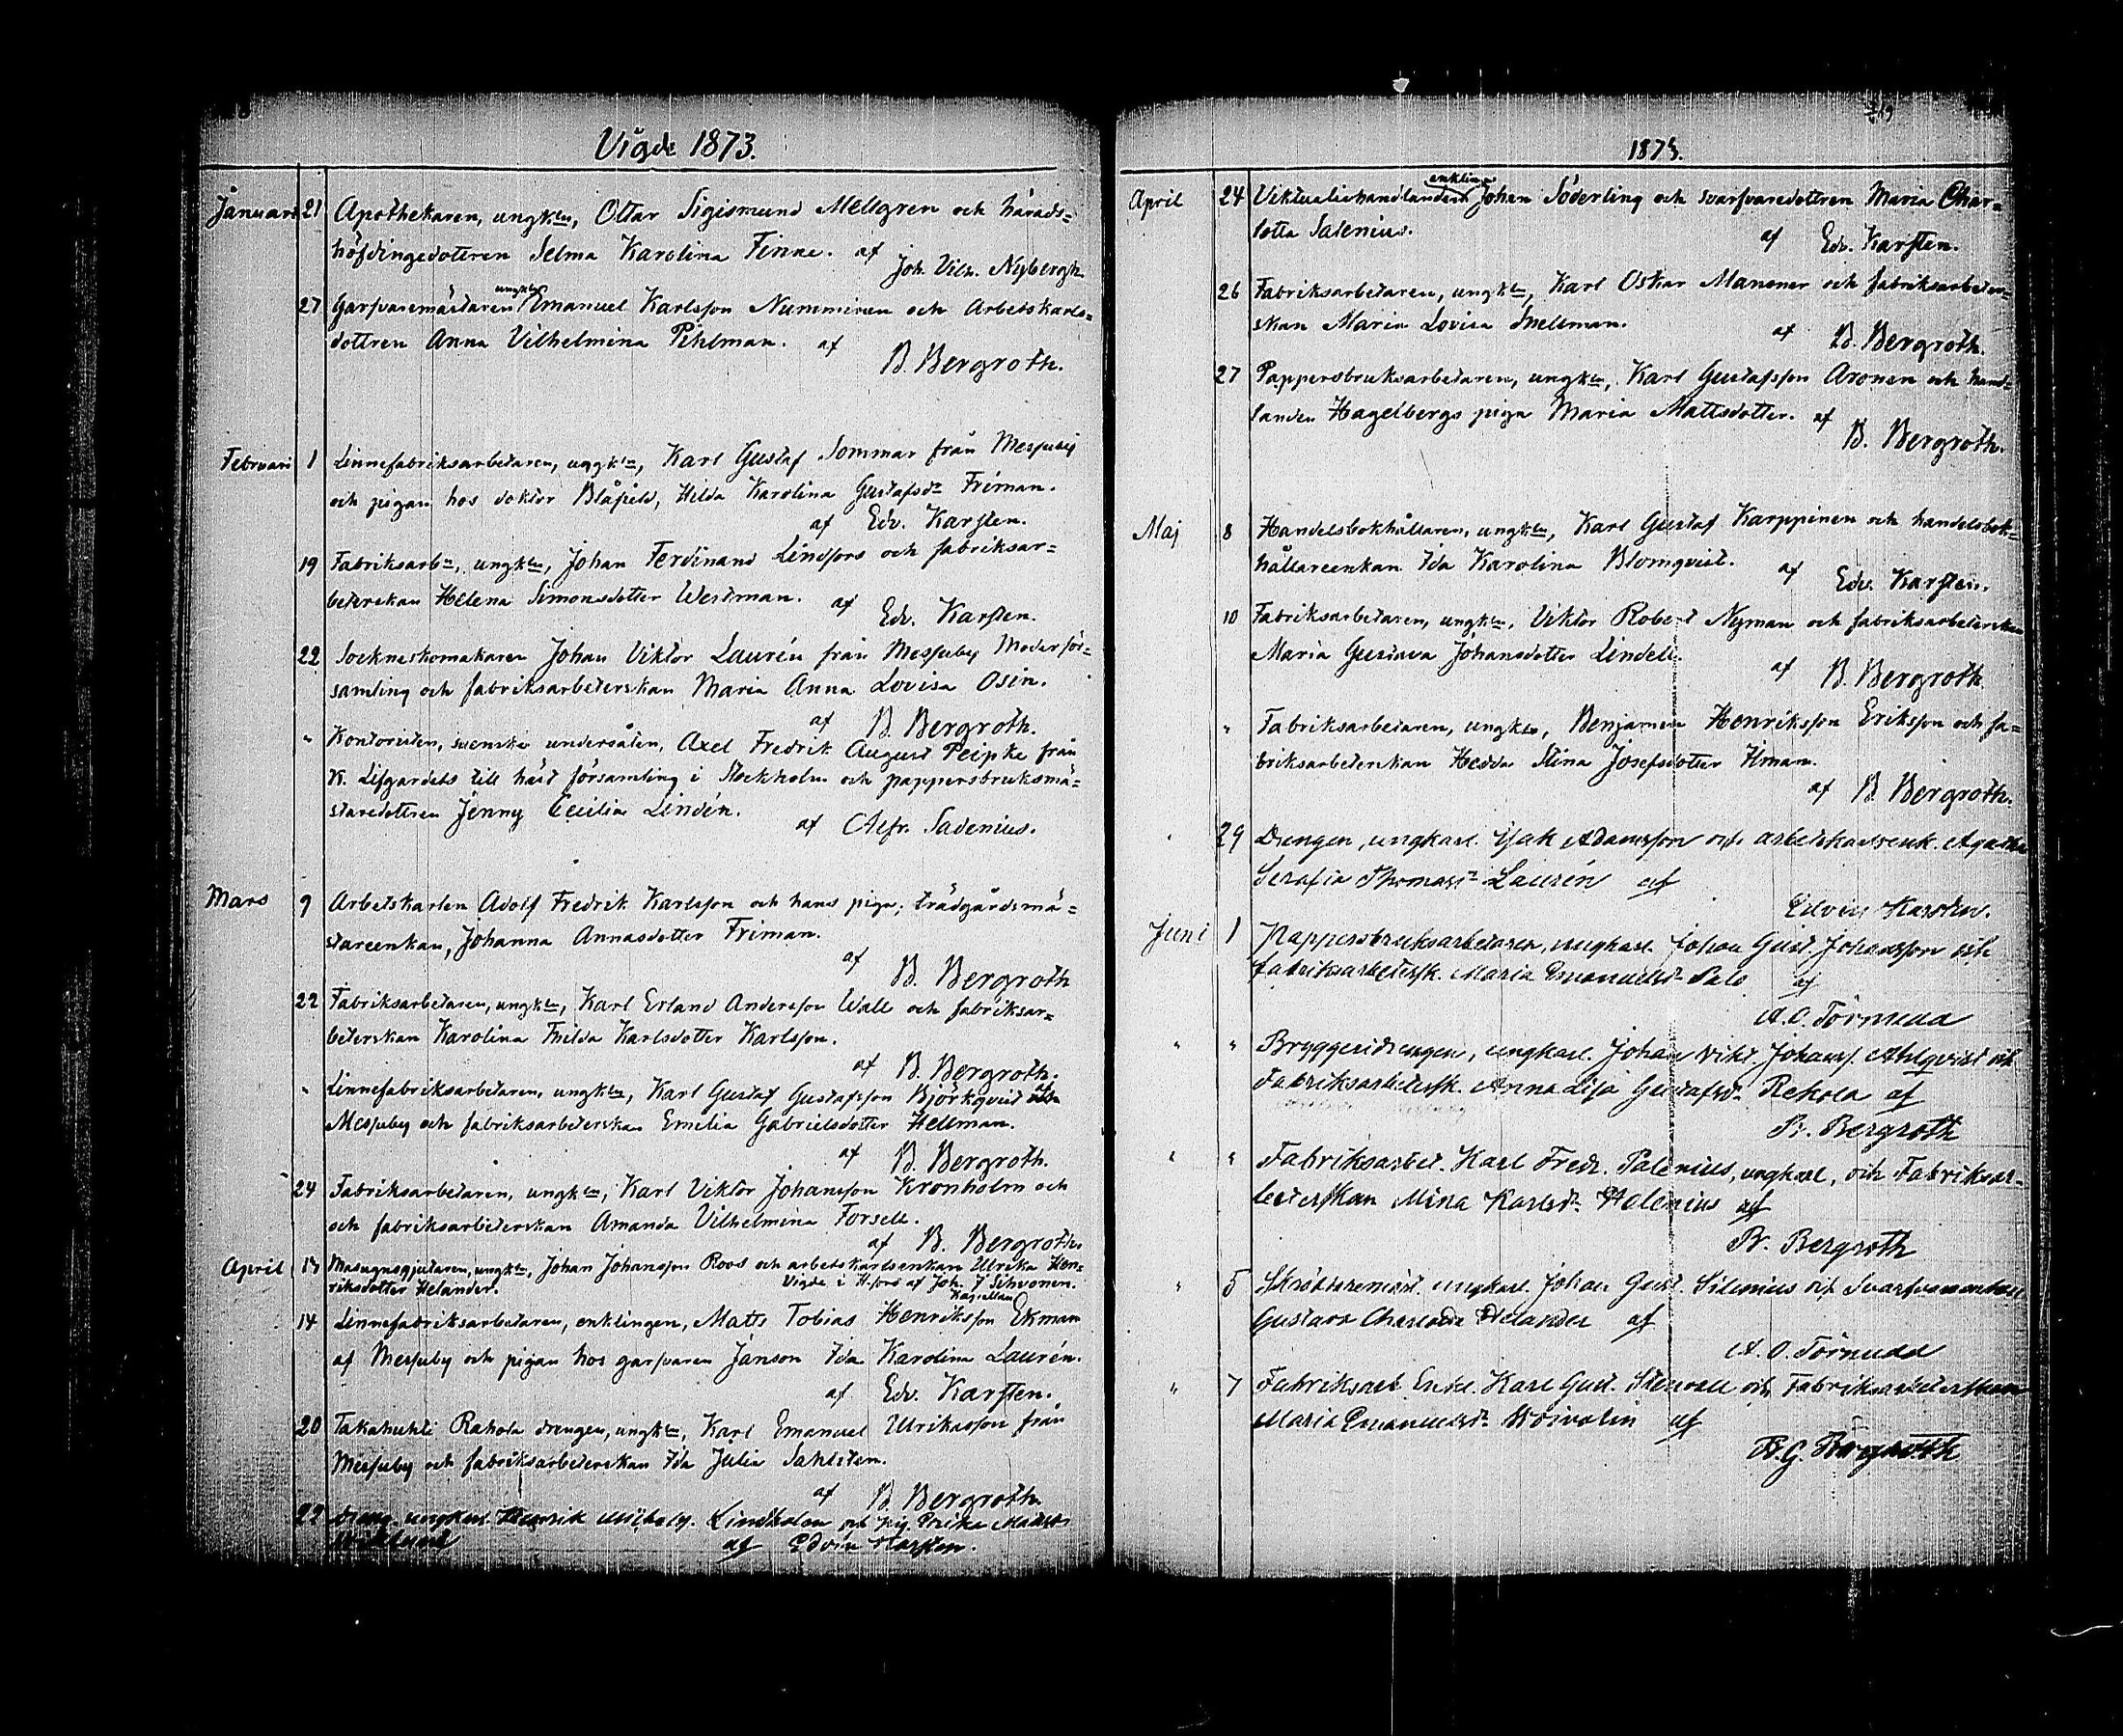 Vigde 1873.
Januari 21 Apothekaren, ungkln, Ottar Sigismund Mellgren och härads=
höfdingedottren Selma Karolina Finne. af Joh. Vilh. Nybergh.
27 Garfvaremästaren ungkln Emanuel Karlsson Numminen och Arbetskarls=
dottren Anna Vilhelmina Pihlman. af
B. Bergroth.
Februari 1 Linnefabriksarbetaren, ungkln, Karl Gustaf Sommar från Messuby
och pigan hos doktor Blåfield, Hilda Karolina Gustafsdr Friman.
af Edv. Karsten.
19 Fabriksarbn, ungkln, Johan Ferdinand Lindfors och fabriksar=
beterskan Helena Simonsdotter Westman. af Edv. Karsten.
22 Sockneskomakaren Johan Viktor Laurén från Messuby Moderför=
samling och fabriksarbeterskan Maria Anna Lovisa Osin.
af B. Bergroth.
" Kontoristen, svenske undersåten, Axel Fredrik August Peipke från
K. Lifgardets till häst församling i Stockholm och pappersbruksmä=
staredottren Jenny Cecilia Lindén. af Alfr. Sadenius.
Mars 9 Arbetskarlen Adolf Fredrik Karlsson och hans piga, trädgårdsmä=
stareenkan, Johanna Annasdotter Friman.
af B. Bergroth
22 Fabriksarbetaren, ungkln, Karl Erland Andersson Wall och fabriksar=
beterskan Karolina Thilda Karlsdotter Karlsson.
af B. Bergroth.
" Linnefabriksarbetaren, ungkln, Karl Gustaf Gustafsson Björkqvist af
Messuby och fabriksarbeterskan Emilia Gabrielsdotter Hellman.
af B. Bergroth.
24 Fabriksarbetaren, ungkln, Karl Viktor Johansson Kronholm och
och fabriksarbeterskan Amanda Vilhelmina Forsell.
af B. Bergroth.
April 13 Masugnsgjutaren, ungkln, Johan Johansson Roos och arbetskarlsenkan Ulrika Hen=
riksdotter Helander. Vigde i H:fors af Joh. J Sihvonen.
Kapellan
14 Linnefabriksarbetaren, enklingen, Matts Tobias Henriksson Ekman
af Messuby och pigan hos garfvaren Janson Ida Karolina Laurén.
af Edv. Karsten.
20 Takahuhti Rahola drengen, ungkln, Karl Emanuel Ulriksson från
Messuby och fabriksarbeterskan Ida Julia Sahlsten.
af B. Bergroth.
22 Dreng. ungkarl. Henrik Lindholm och pig.
af Edvin Karsten.
1873.
April 24 Viktualiehandlanden enklin Johan Söderling och svarfvaredottren Maria Char=
lotta Salenius. af Edv. Karsten.
26 Fabriksarbetaren, ungkln, Karl Oskar Mansner och fabriksarbeter=
skan Maria Lovisa Snellman.
af B. Bergroth.
27 Pappersbruksarbetaren, ungkln, Karl Gustafsson Aronen och hand=
landen Hagelbergs piga Maria Mattsdotter. af
B. Bergroth.
Maj 8 Handelsbokhållaren, ungkln, Karl Gustaf Karppinen och handelsbok=
hållareenkan Ida Karolina Blomqvist. af Edv. Karsten.
10 Fabriksarbetaren, ungkln, Viktor Robert Nyman och fabriksarbeterskan
Maria Gustava Johansdotter Lindell.
af B. Bergroth.
" Fabriksarbetaren, ungkln, Benjamin Henriksson Eriksson och fa=
briksarbeterskan Hedda Stina Josefsdotter Hman.
af B. Bergroth.
" 29 Drengen, ungkarl. Isak Adamsson och arbetskarlsenk. Agatha
Serafia Thomasdr Laurén af
Edvin Karsten.
Juni 1 Pappersbruksarbetaren, ungkarl. Johan Gust. Johansson och
fabriksarbetersk. Maria Emanuelsdr Palo af
A. O. Törnudd
" " Bryggeridrengen, ungkarl. Johan Vikt. Johanss. Ahlqvist och
Fabriksarbetersk. Anna Lisa Gustafsdr Rekola af
B. Bergroth
" " Fabriksarbet. Karl Fredr. Palenius, ungkarl, och Fabriksar-
beterskan Mina Karlsdr Helenius af
B. Bergroth
" 5 ungkarl. Johan Gust. Silenius och
Gustava Charlotta Helander af
A. O. Törnudd
" 7 Fabriksarb. Enkl. Karl Gust. Stenvall och Fabriksarbeterskan
Maria Emanuelsdr Koivolin af
B. G. Bergroth